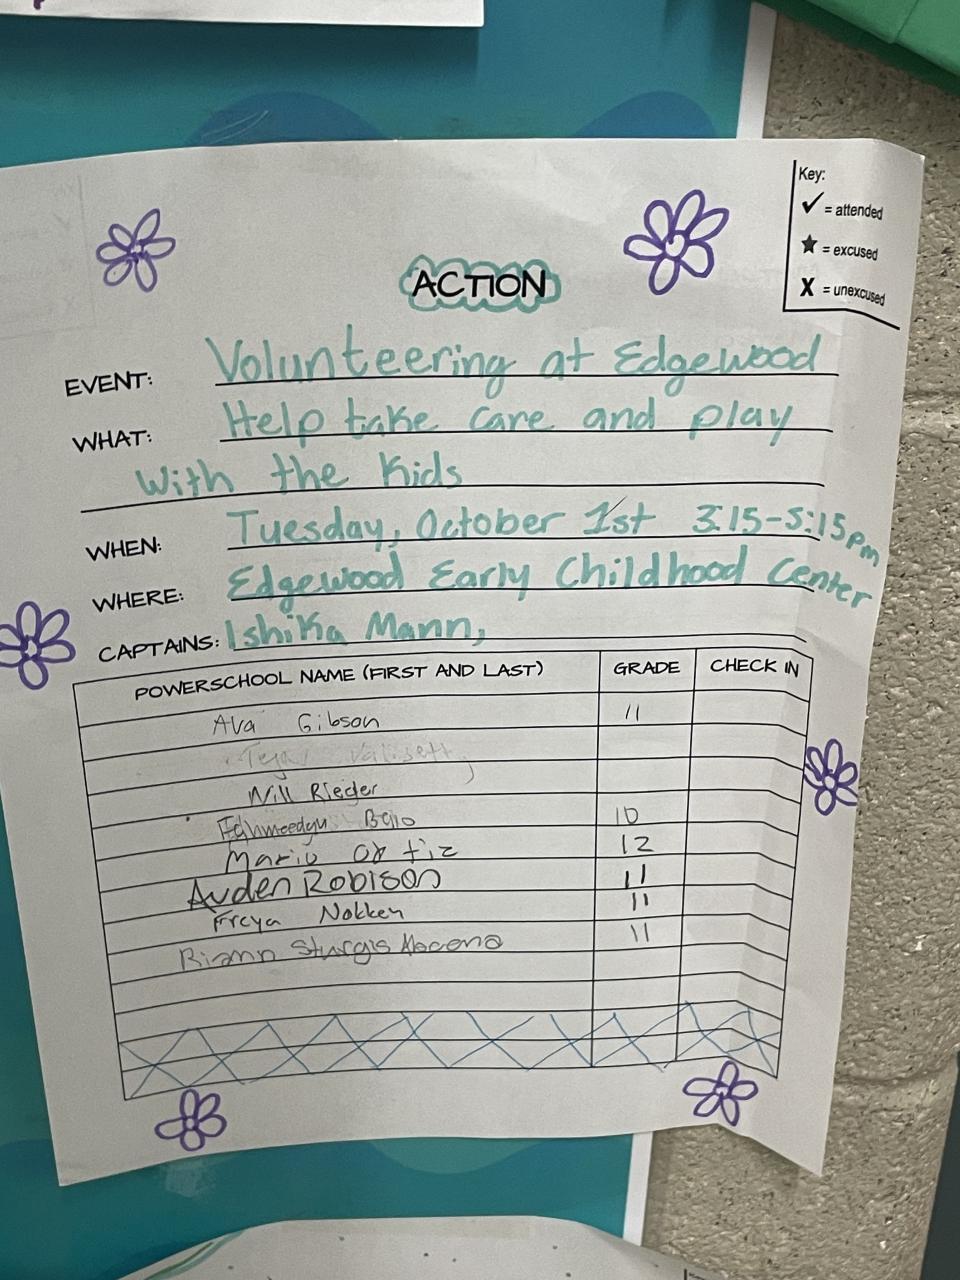 Key:
✓ = attended
★ = excused
X = unexcused
ACTION
EVENT: Volunteering at Edgewood
WHAT: Help take care and play
with the kids
WHEN: Tuesday, October 1st 3:15-5:15pm
WHERE: Edgewood Early Childhood Center
CAPTAINS: Ishika Mann,
POWERSCHOOL NAME (FIRST AND LAST) GRADE CHECK IN
Ava Gibson 11
Will Rieder
Bello 10
Mario Ortiz 12
Auden Robison 11
Freya Nokken 11
Sturgis 11